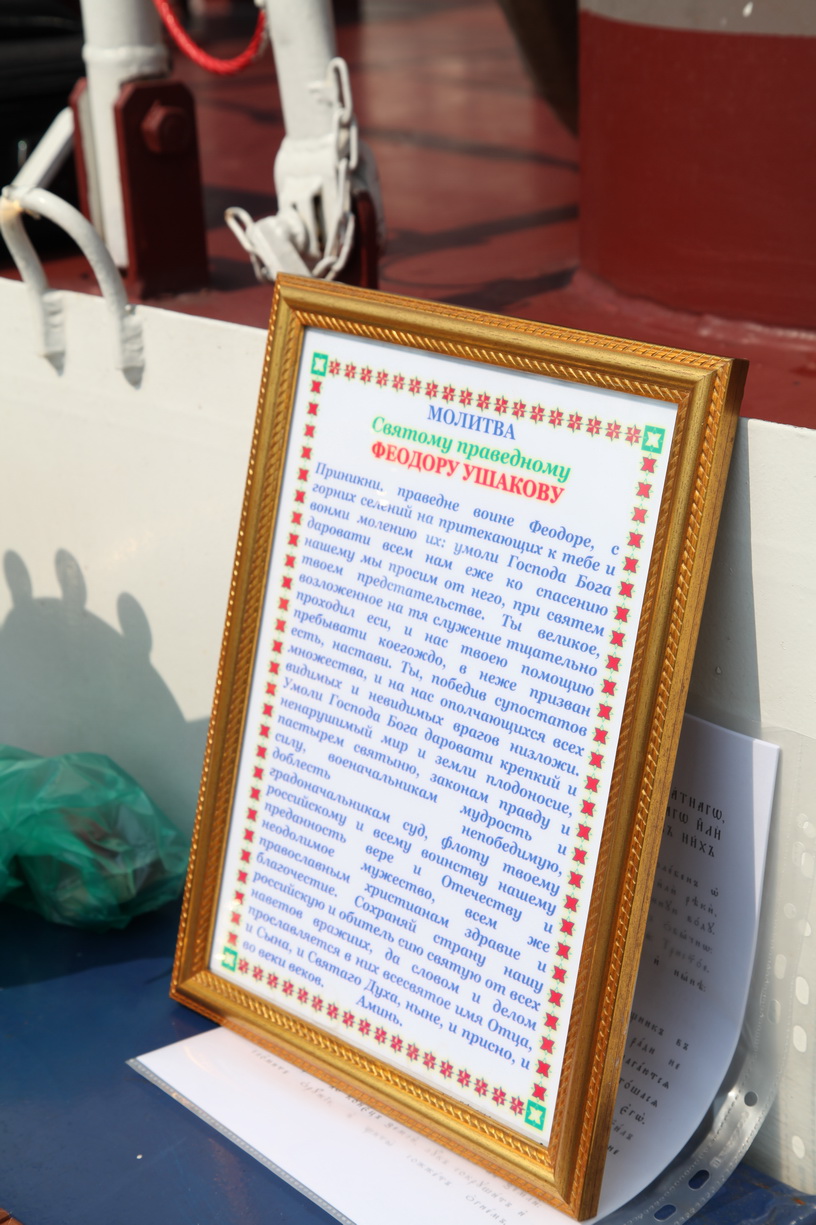 МОЛИТВА
Святому праведному
ФЕОДОРУ УШАКОВУ
Приникни, праведне воине Феодоре, с
горних селений на притекающих к тебе и
вонми молению их: умоли Господа Бога
даровати всем нам еже ко спасению
нашему мы просим от него, при святем
твоем предстательстве. Ты великое,
возложенное на тя служение тщательно
проходил еси, и нас твоею помощию
пребывати коегождо, в неже призван
есть, настави. Ты, победив супостатов
множества, и на нас ополчающихся всех
видимых и невидимых врагов низложи.
Умоли Господа Бога даровати крепкий и
ненарушимый мир и земли плодоносие,
пастырем святыню, законам правду и
силу, военачальникам мудрость и
доблесть непобедимую,
градоначальникам суд, флоту твоему
российскому и всему воинству нашему
преданность вере и Отечеству и
неодолимое мужество, всем же
православным христианам здравие и
благочестие. Сохраняй страну нашу
российскую и обитель сию святую от всех
наветов вражиих, да словом и делом
прославляется в них всесвятое имя Отца,
и Сына, и Святаго Духа, ныне, и присно, и
во веки веков.
Аминь.